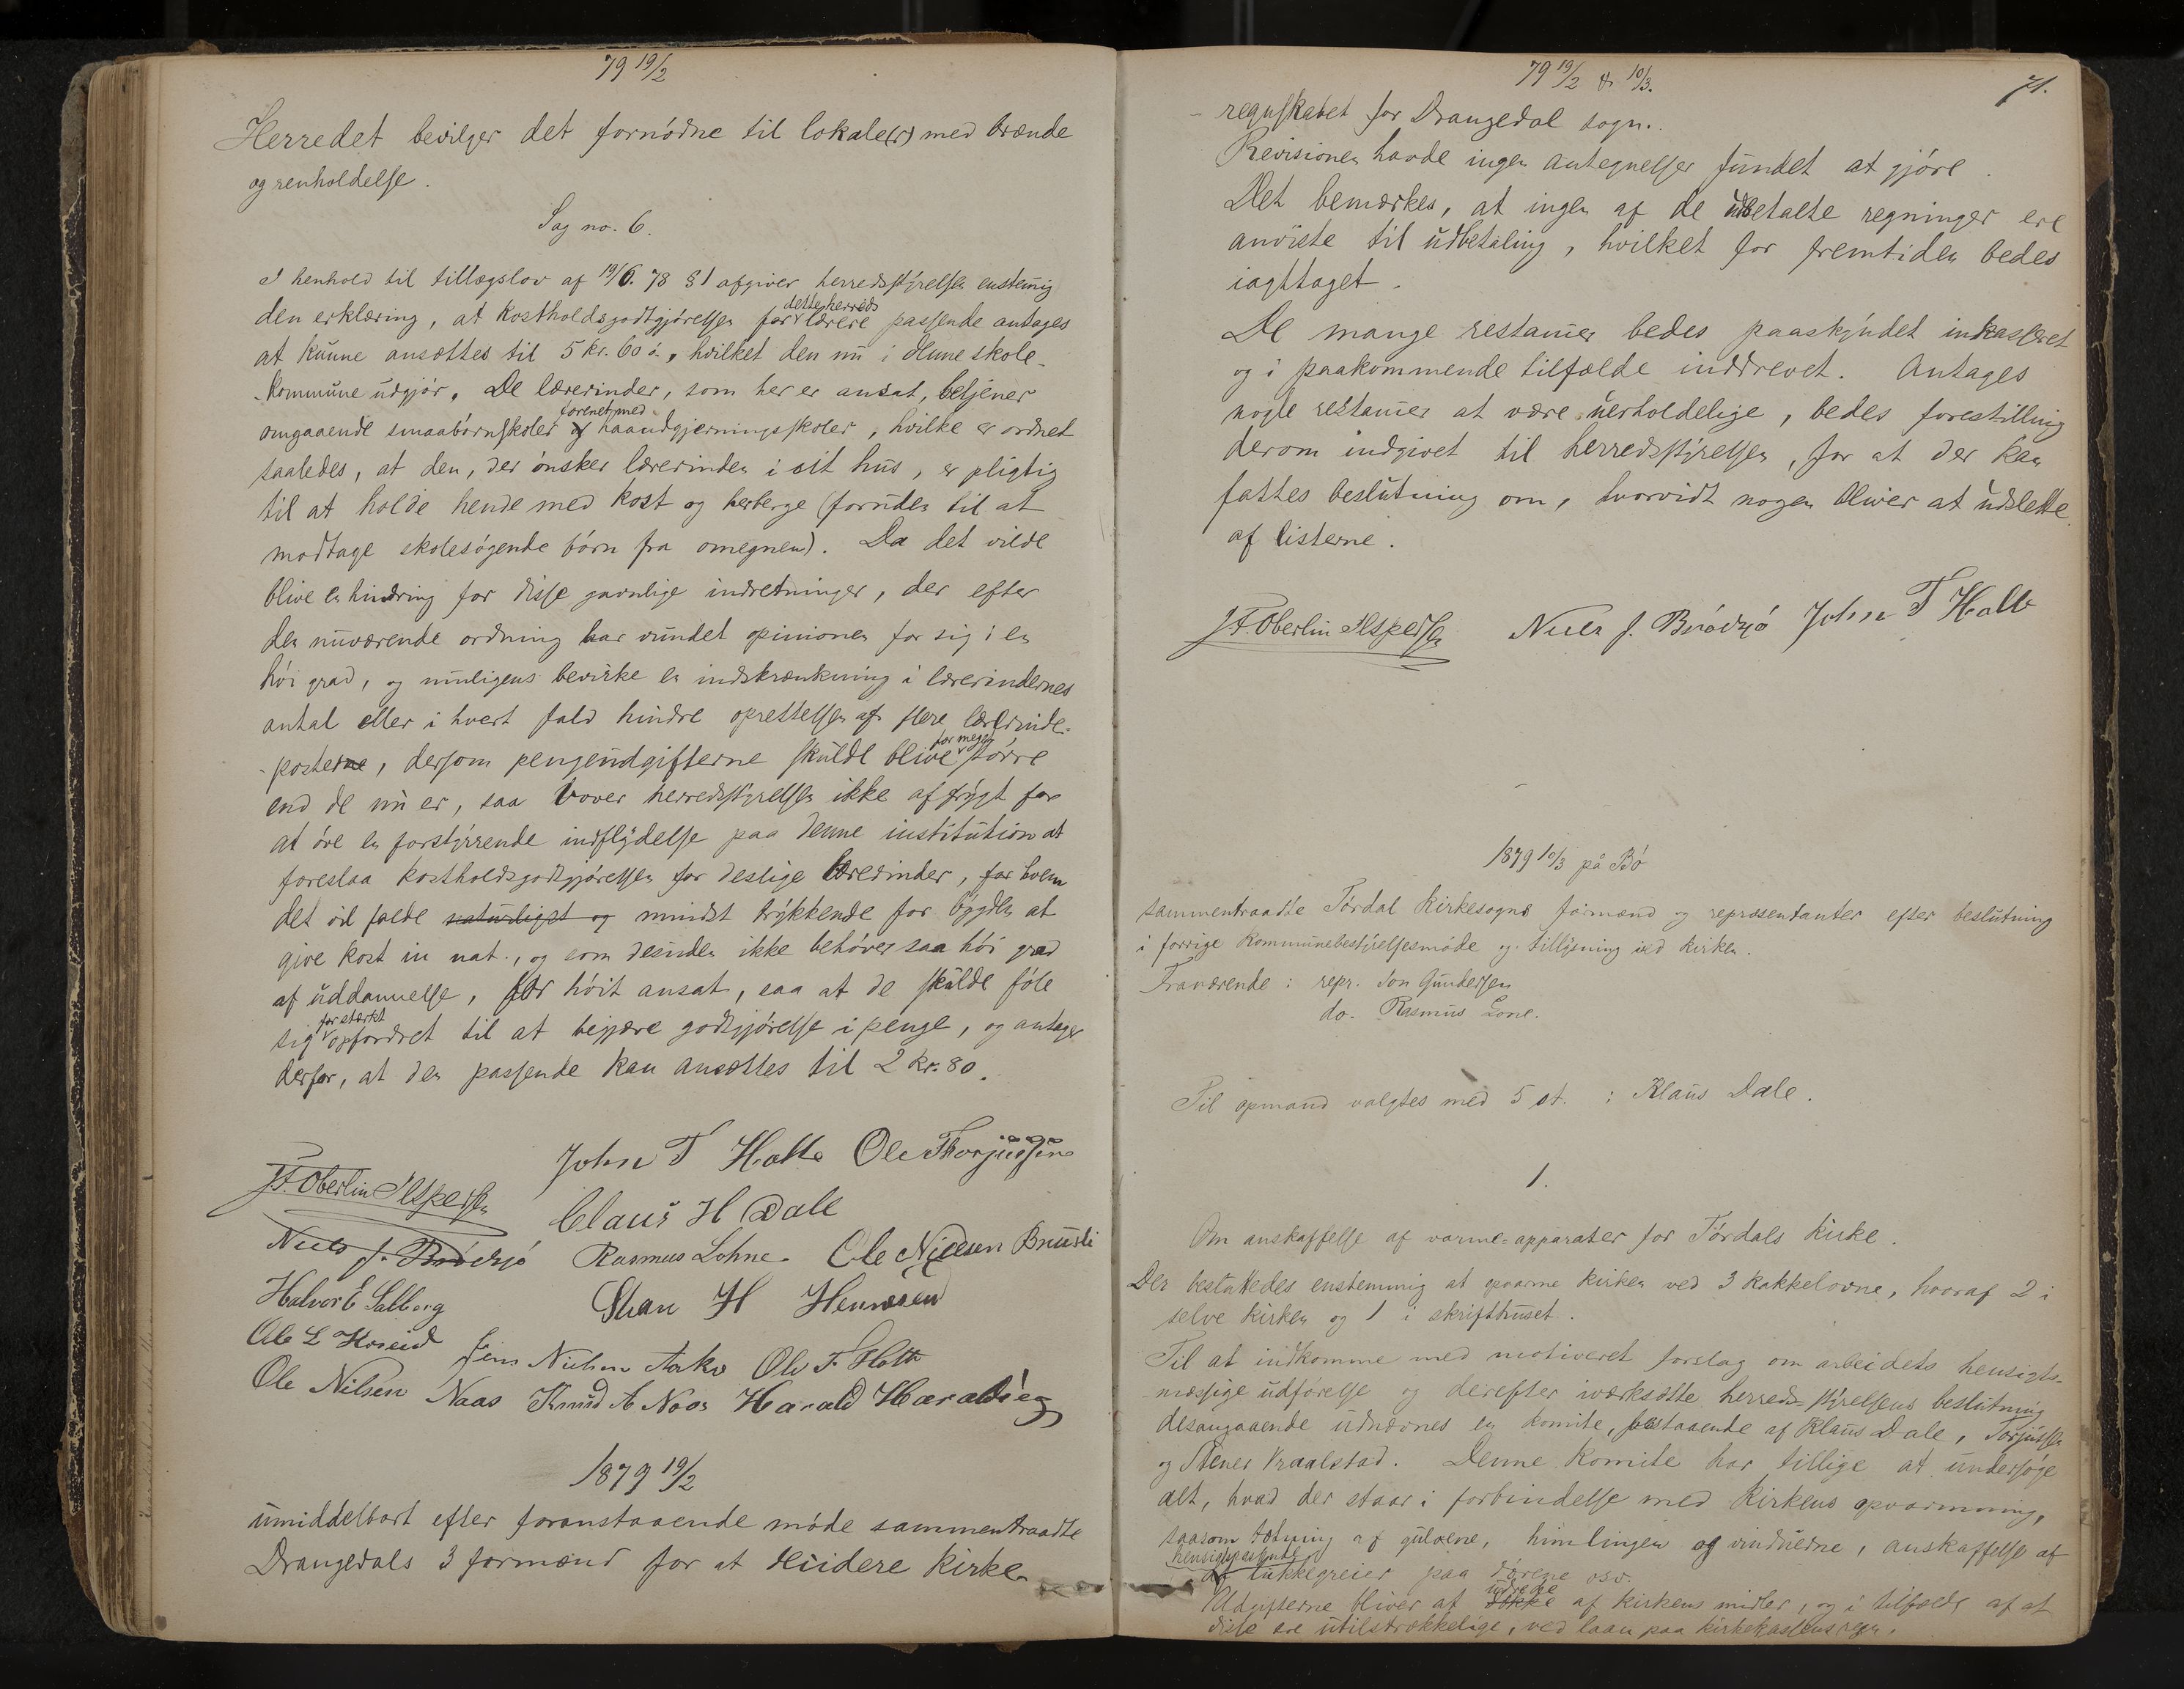 79 19/2
Herredet bevilger det fornødne til lokale(r) med brænde
og renholdelse.
Sag no. 6.
I henhold til tillægslov af 19/6. 78 § 1 afgiver herredsstyrelsen enstemmig
den erklæring, at kostholdsgodtgjørelsen for dette herreds lærere passende antages
at kunne ansættes til 5 kr. 60 ø., hvilket den nu i denne skole-
-kommune udgjør. De lærerinder, som her er ansat, betjener
omgaaende smaabørnskoler forenet med haandgjerningsskoler, hvilke er ordnet
saaledes, at den, der ønsker lærerinden i sit hus, er pligtig
til at holde hende med kost og herberge (foruden til at
modtage skolesøgende børn fra omegnen). Da det vilde
blive en hindring for disse gavnlige indretninger, der efter
den nuværende ordning har vundet opinionen for sig i en
høi grad, og muligens bevirke en indskrænkning i lærerindernes
antal eller i hvert fald hindre oprettelsen af flere lærerinde-
-posterne, dersom pengeudgifterne skulde blive for meget større
end de nu er, saa vover herredsstyrelsen ikke af frygt for
at øve en forstyrrende indflydelse paa denne institution at
foreslaa kostholdsgodtgjørelsen for deslige lærerinder, for hvem
det vil falde naturligst og mindst trykkende for bygden at
give kost in nat., og som desuden ikke behøver saa høi grad
af uddannelse, for høit ansat, saa at de skulde føle
sig for stærkt opfordret til at begjære godtgjørelse i penge, og antager
derfor, at den passende kan ansættes til 2 kr. 80.
John T Holte Ole Thorjussen
J.F. Oberlin Jespersen
Claus H Dale
Niels J. Brødsjø Rasmus Lohne. Ole Nielsen Brusli
Halvor E Solberg
H
Ole L Jens Nielsen Ole T. Holte
Ole Nilsen Naas Knud A Naas Harald
1879 19/2
umiddelbart efter foranstaaende møde sammentraadte
Drangedals 3 formænd for at revidere kirke-
79 19/2 & 10/3.
71.
-regnskabet for Drangedal sogn.
Revisionen havde ingen antegnelser fundet at gjøre.
Det bemærkes, at ingen af de udbetalte regninger ere
anviste til udbetaling, hvilket for fremtiden bedes
iagttaget.
De mange restancer bedes paaskyndet inkasseret
og i paakommende tilfælde inddrevet. Antages
nogle restancer at være uerholdelige, bedes forestilling
derom indgivet til herredsstyrelsen, for at der kan
fattes beslutning om, hvorvidt nogen bliver at udslette
af listerne.
J.F. Oberlin Jespersen Niels J. Brødsjø John T Holte
1879 10/3 på Bø
sammentraadte Tørdal kirkesogns formænd og repræsentanter efter beslutning
i forrige kommunebestyrelsesmøde og tillysning ved kirken.
Fraværende: repr. Jon Gundersen
do. Rasmus Lone.
Til opmand valgtes med 5 st.: Klaus Dale.
1.
Om anskaffelse af varme-apparater for Tørdals kirke.
Der besluttedes enstemmig at opvarme kirken ved 3 kakkelovne, hvoraf 2 i
selve kirken og 1 i skrifthuset.
Til at indkomme med motiveret forslag om arbeidets hensigts-
mæssige udførelse og derefter iværksætte herreds-styrelsens beslutning
desangaaende udnævnes en komite, bestaaende af Klaus Dale, Torjussen
og Stener Vraalstad. Denne komite har tillige at undersøge
alt, hvad der staar i forbindelse med kirkens opvarmning,
saasom tætning af gulvene, himlingen og vinduerne, anskaffelse af
hensigtspassende lukkegreier paa dørene osv.
Udgifterne bliver at udrede af kirkens midler, og i tilfælde af at
disse ere utilstrækkelige, ved laan paa kirkekassens regn.